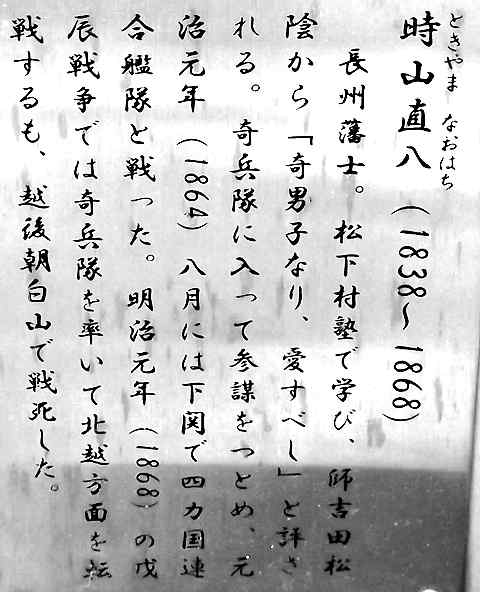 ときやま なおはち
時山直八（1838～1868）
長州藩士。松下村塾で学び、師吉田松
陰から「奇男子なり、愛すべし」と評さ
れる。奇兵隊に入って参謀をつとめ、元
治元年（1864）八月には下関で四カ国連
合艦隊と戦った。明治元年（1868）の戊
辰戦争では奇兵隊を率いて北越方面を転
戦するも、越後朝白山で戦死した。